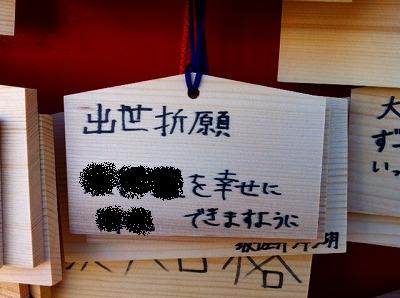 出世折願
を幸せに
できますように
大
ずっ
いっ
合格